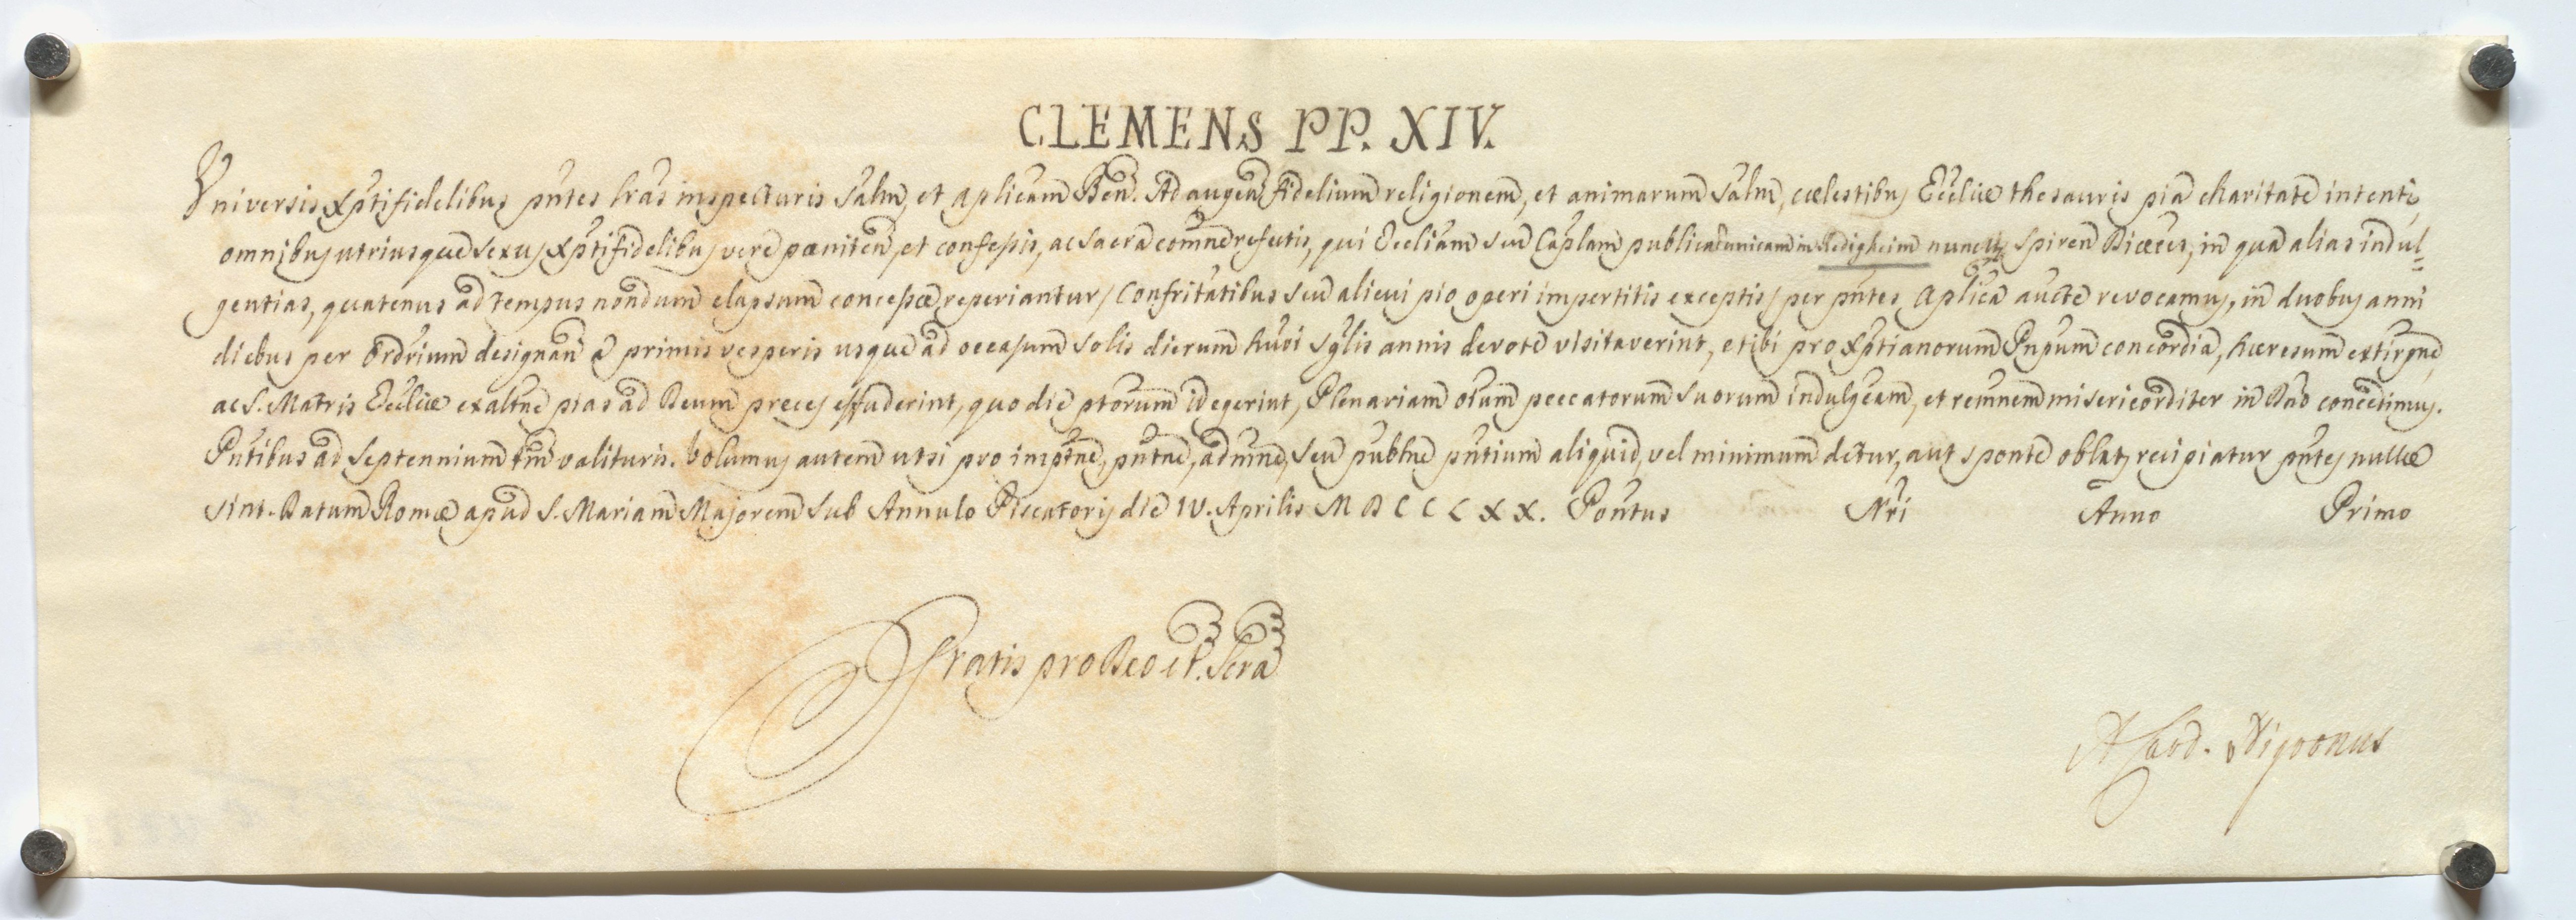 CLEMENS PP. XIV.
Universis Xptifidelibus pntes lras inspecturis Salm, et Aplicam Ben. Ad augen fidelium religionem, et animarum Salm, cœlestibus Eccliæ thesauris pia charitate intenti,
omnibus utriusque Sexus Xptifidelibus vere pœniten, et confessis, ac Sacra comne refectis, qui Eccliam seu Caplam publicam unicam in Redigheim nuncup Spiren Diœces, in qua alias indul=
gentias, quatenus ad tempus nondum elapsum concessæ reperiantur / Confritatibus seu alicui pio operi impertitis exceptis / per pntes Aplica aucte revocamus, in duobus anni
diebus per Ordrium designan a primis vesperis usque ad occasum Solis dierum huoi Sglis annis devote visitaverint, et ibi pro Xptianorum Pnpum concordia, hæresum extirpne,
ac S. Matris Eccliæ exaltne pias ad Deum preces effuderint, quo die ptorum id egerint, Plenariam oium peccatorum Suorum indulgeam, et remnem misericorditer in Dno concedimus.
Pntibus ad Septennium tm valituris. Volumus autem ut si pro imptne, pntne, admne, seu publne pntium aliquid, vel minimum detur, aut sponte oblat, recipiatur pntes nullæ
sint. Datum Romæ apud S. Mariam Majorem sub Annulo Piscatoris die IV. Aprilis MDCCLXX. Pontus Nri Anno Primo
Gratis pro Deo et Scra
A Card. Nigronus